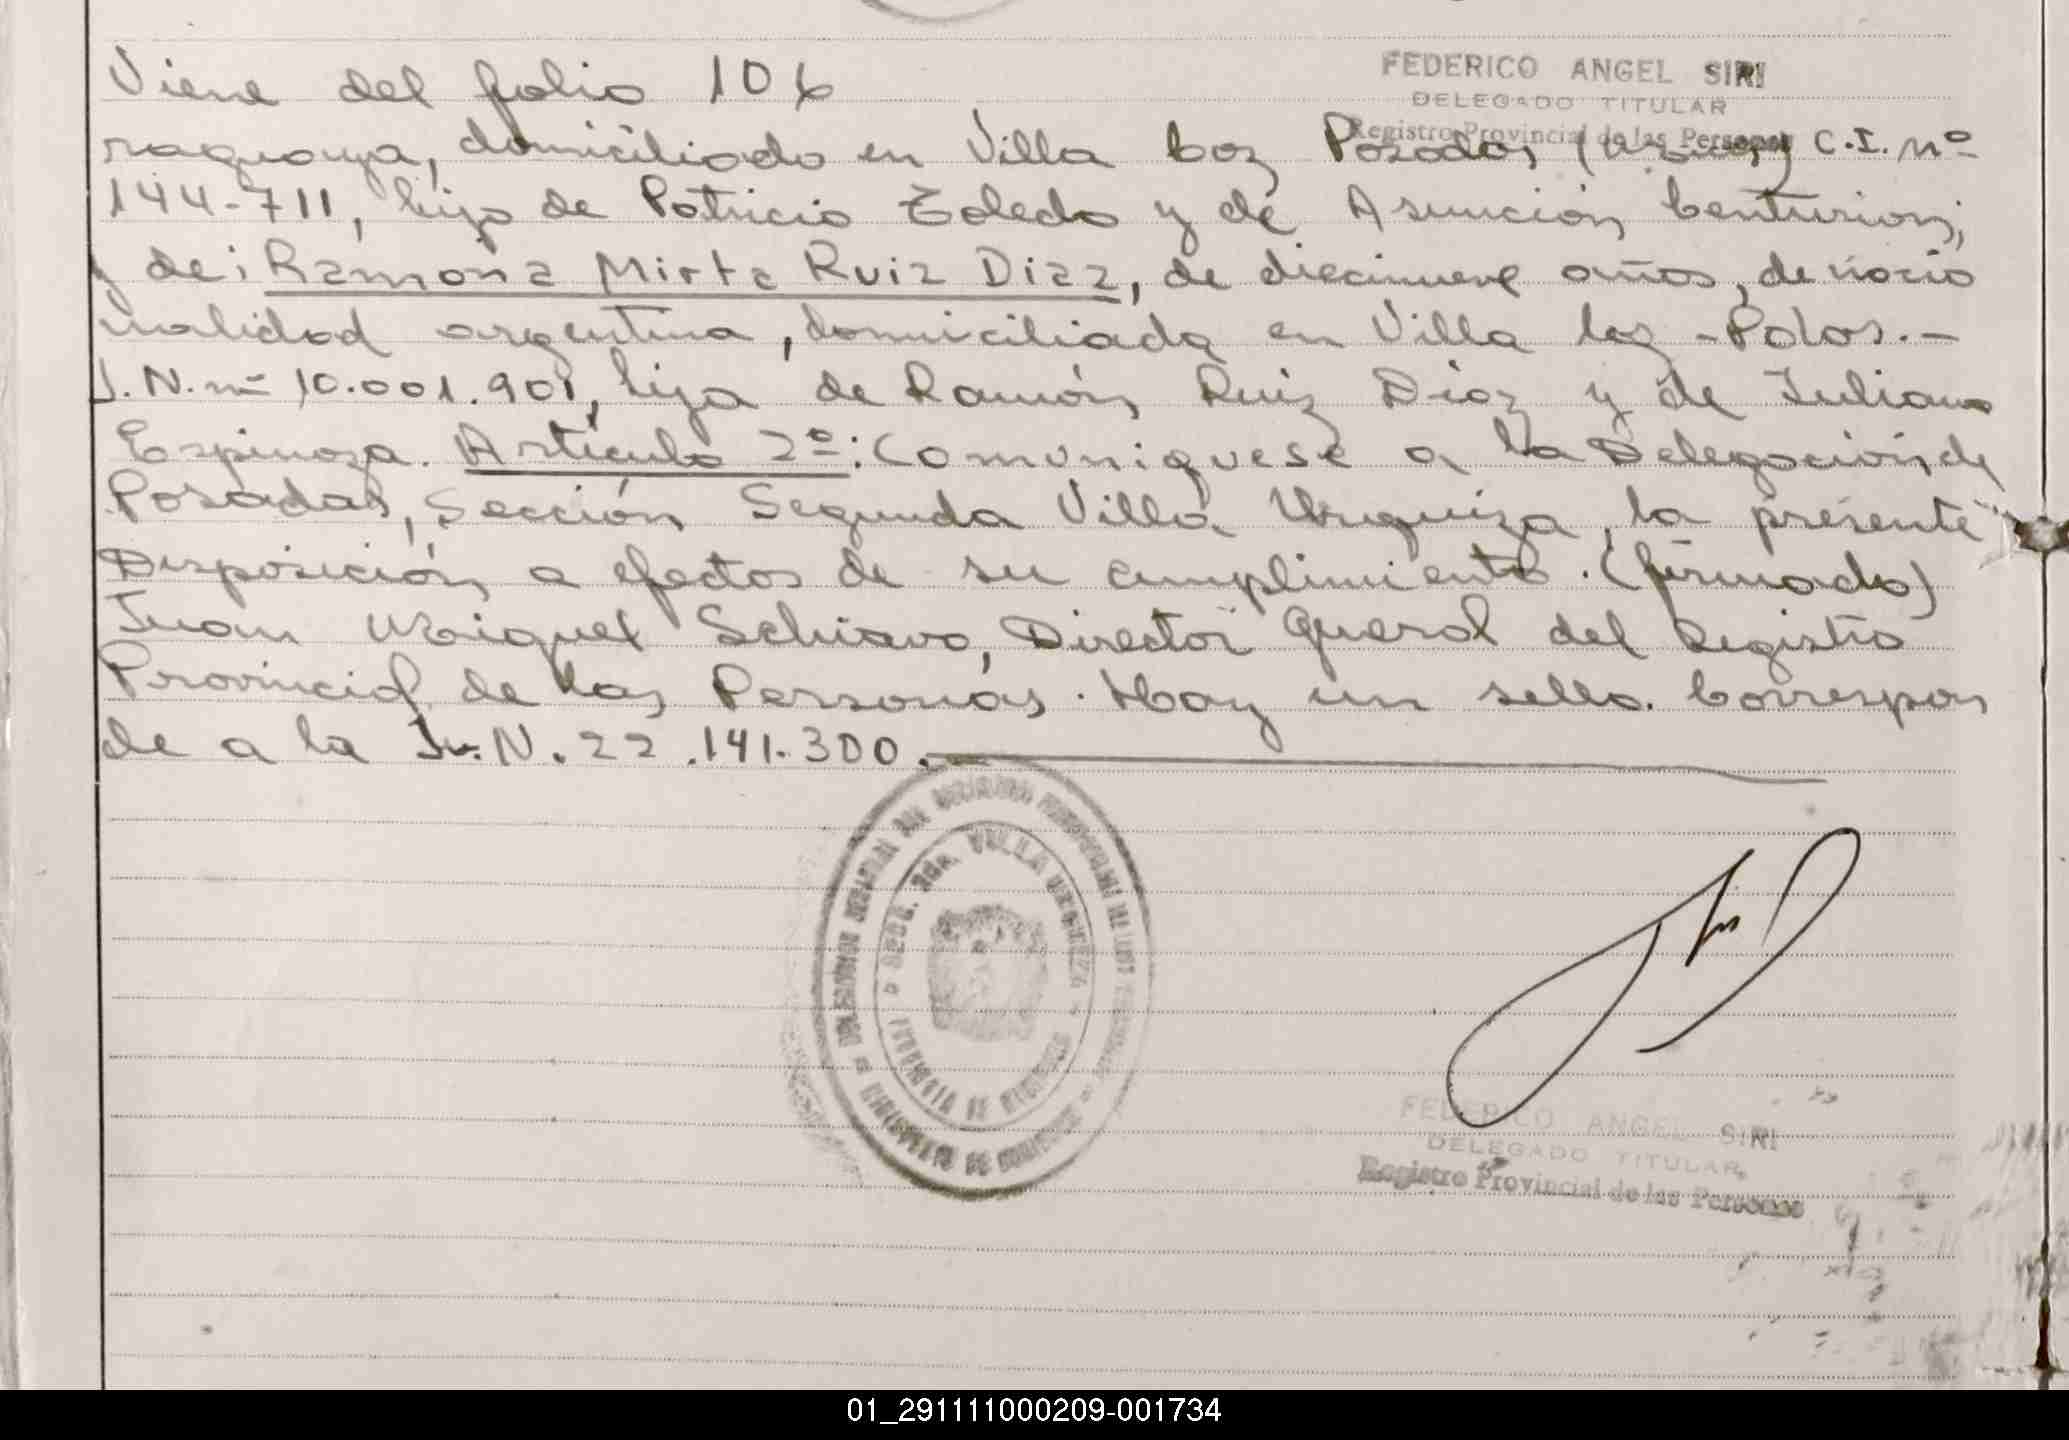 Viene del folio 106
FEDERICO ANGEL SIRI
DELEGADO TITULAR
Registro Provincial de las Personas
raguaya, domiciliado en Villa Coz Posadas C.I. nº
144-711, hijo de Patricio Toledo y de Asunción Centurion;
y de: Ramona Mirta Ruiz Diaz, de diecinueve años, de nacio
nalidad argentina, domiciliada en Villa Coz - Pdas. -
nº 10.001.901, hija de Ramón Ruiz Diaz y de Juliana
Espinoza. Artículo 2º: Comuniquese a la Delegación de
Posadas, Sección Segunda Villa Urquiza, la presente
Disposición a efectos de su cumplimiento. (firmado)
Juan Miguel Schiavo, Director General del Registro
Provincial de las Personas. Hay un sello. Correspon
de a la N. 22.141.300.
SECC. 2da. VILLA URQUIZA
PROVINCIA DE MISIONES
FEDERICO ANGEL SIRI
DELEGADO TITULAR
Registro Provincial de las Personas
01_291111000209-001734